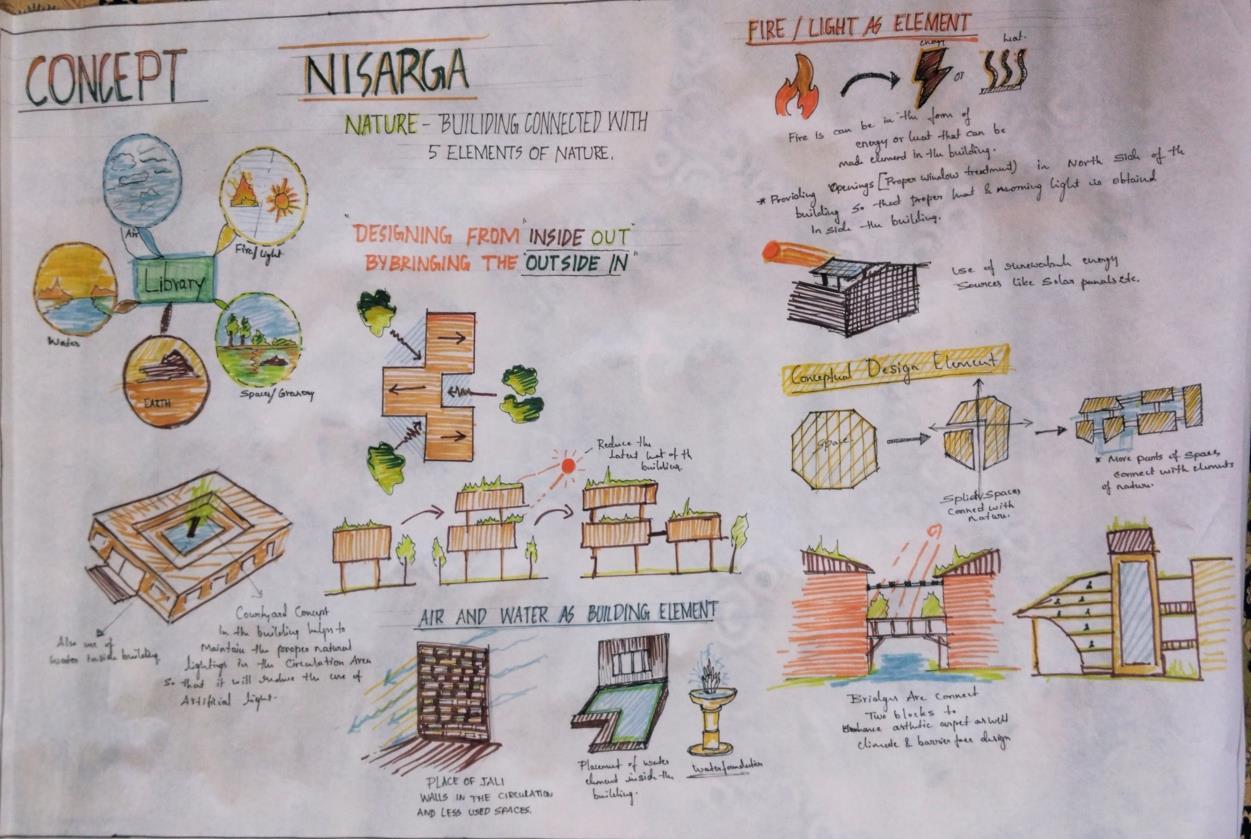 CONCEPT
NISARGA
NATURE - BUILIDING CONNECTED WITH
5 ELEMENTS OF NATURE.
Air
Fire/light
Library
Water
EARTH
Space/Greenery
"DESIGNING FROM "INSIDE OUT"
BY BRINGING THE "OUTSIDE IN"
Reduce the
latent heat of th
building.
Also use of
water inside building
Courtyard Concept
In the building helps to
Maintain the proper natural
lightings in the Circulation Area
So that it will reduce the use of
Artificial light.
AIR AND WATER AS BUILDING ELEMENT
PLACE OF JALI
WALLS IN THE CIRCULATION
AND LESS USED SPACES.
Placement of water
element inside the
building.
FIRE / LIGHT AS ELEMENT
energy
or
heat.
Fire is can be in the form of
energy or heat that can be
made element in the building.
* Providing Openings [Proper window treatment) in North Side of the
building so that proper heat & morning light is obtained
In side the building.
Use of renewable energy
Sources like Solar panels etc.
Conceptual Design Element
Space
Spaces
Conned with
nature.
* More parts of Spaces
connect with elements
of nature.
Bridges Are Connect
Two blocks to
Enhance asthetic as well
climate & barrier free design